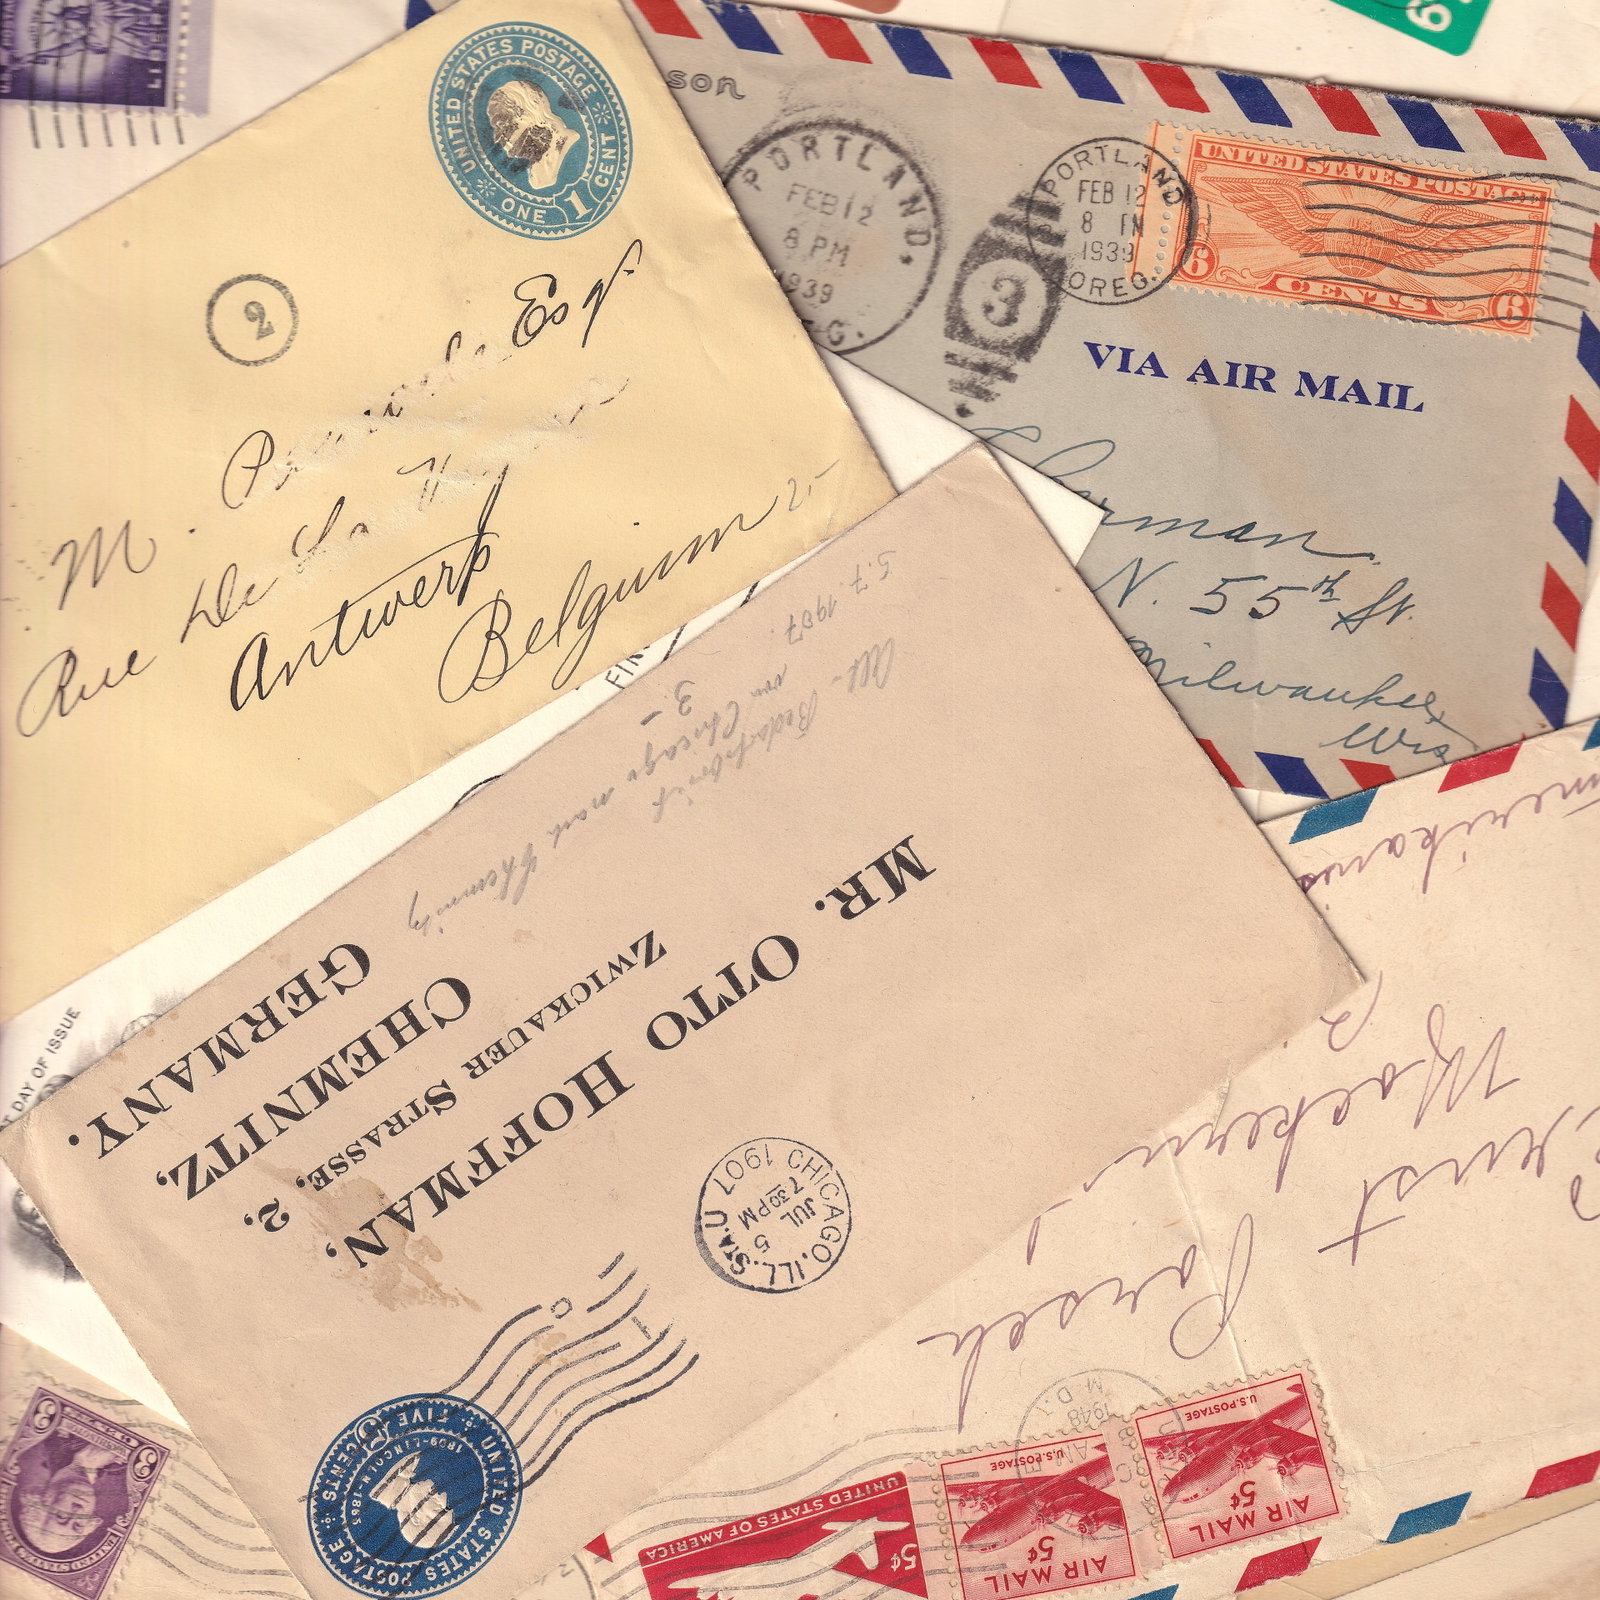 UNITED STATES POSTAGE
ONE 1 CENT
2
M. Esqr
Rue De La
Antwerp
Belgium
son
PORTLAND,
FEB 12
8 PM
1939
3
PORTLAND
FEB 12
8
1939
OREG.
UNITED STATES POSTAGE
6 CENTS 6
VIA AIR MAIL
Sherman.
N. 55th St.
Milwaukee,
Wis
9
5.7.1907.
von Chicago nach Chemnitz
3.-
MR. OTTO HOFFMAN,
ZWICKAUER STRASSE, 2,
CHEMNITZ,
GERMANY.
CHICAGO, ILL. STA. U 1907
JUL
5
7 30 PM
UNITED STATES POSTAGE
FIVE 5 CENTS
1809-LINCOLN-1865
T DAY OF ISSUE
FIR
3 3
UNITED STATES
merikanis
Ernst
Parch
1948
M.D.
UNITED STATES OF AMERICA
5¢
U.S. POSTAGE
5¢
AIR MAIL
U.S. POSTAGE
5¢
AIR MAIL